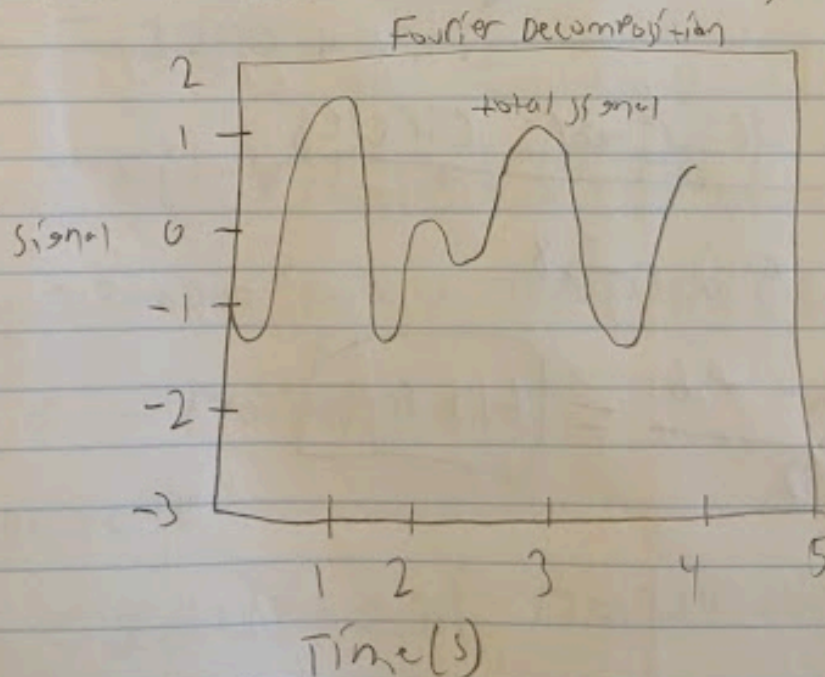 Fourier Decomposition
2
total signal
1
Signal 0
-1
-2
-3
1 2 3 4 5
Time(s)